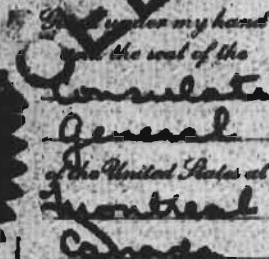 Given under my hand
and the seal of the
Consulate
General
of the United States at
Montreal
Canada